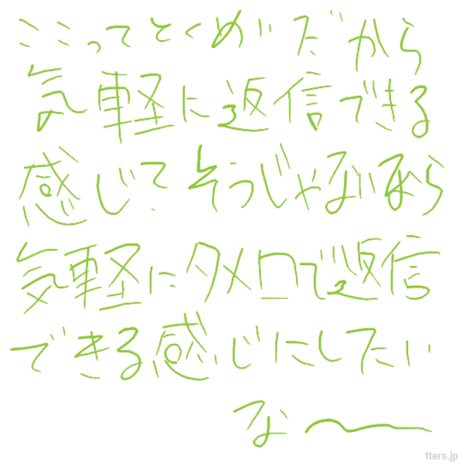 ここってとくめいだから
気軽に返信できる
感じで そうじゃないなら
気軽にタメ口で返信
できる感じにしたい
な〜
tters.jp